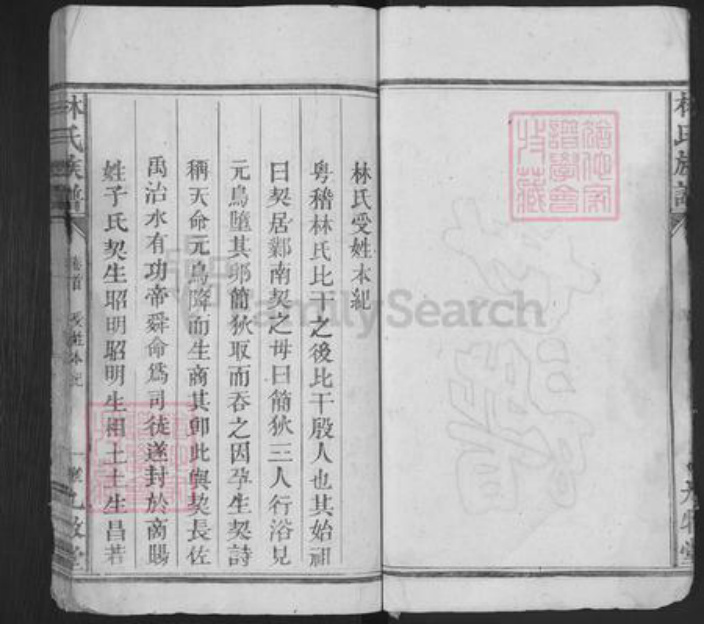 林氏受姓本紀
粤稽林氏比干之後比干殷人也其始祖
曰契居鄴南契之母曰簡狄三人行浴見
元鳥墮其卵簡狄取而吞之因孕生契詩
稱天命元鳥降而生商其卽此與契長佐
禹治水有功帝舜命爲司徒遂封於商賜
姓子氏契生昭明昭明生相土土生昌若
林氏族譜
卷首
受姓本紀
一
九牧堂
林氏族譜
九牧堂
FamilySearch